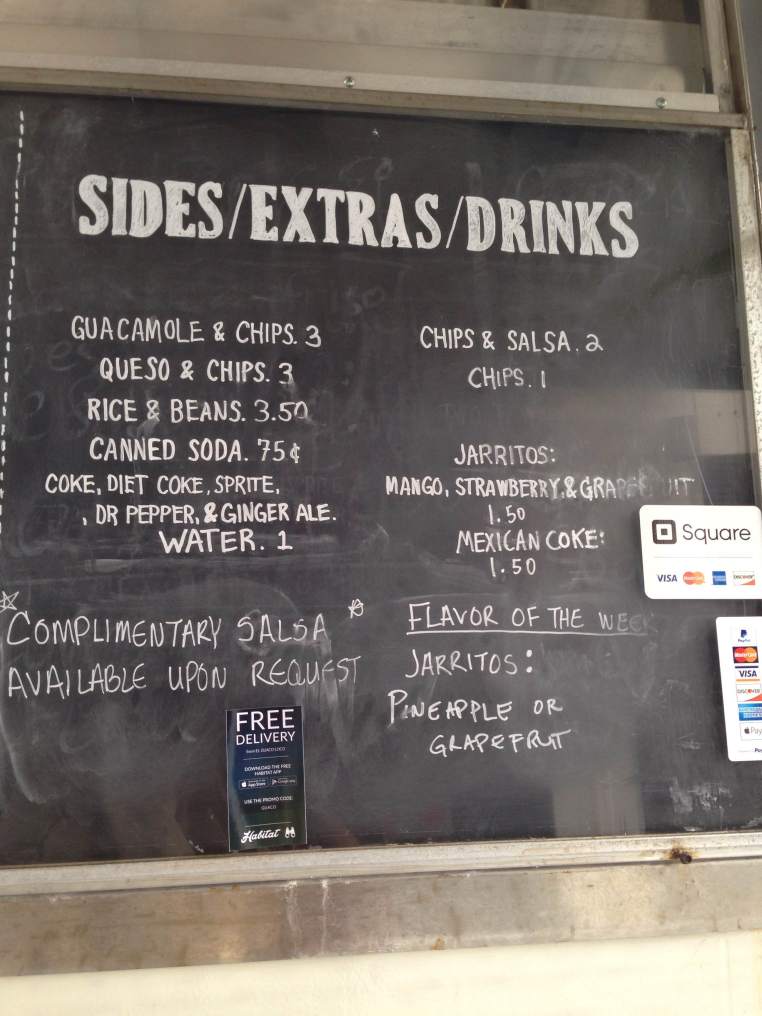 SIDES/EXTRAS/DRINKS
GUACAMOLE & CHIPS. 3
QUESO & CHIPS. 3
RICE & BEANS. 3.50
CANNED SODA. 75¢
COKE, DIET COKE, SPRITE,
, DR PEPPER, & GINGER ALE.
WATER. 1
COMPLIMENTARY SALSA
AVAILABLE UPON REQUEST
CHIPS & SALSA. 2
CHIPS. 1
JARRITOS:
MANGO, STRAWBERRY, & GRAPEFRUIT
1.50
MEXICAN COKE:
1.50
FLAVOR OF THE WEEK
JARRITOS:
PINEAPPLE OR
GRAPEFRUT
FREE
DELIVERY
from EL GUACO LOCO
DOWNLOAD THE FREE
HABITAT APP
App Store Google play
USE THE PROMO CODE:
GUACO
Habitat
Square
VISA MasterCard DISCOVER
PayPal
MasterCard
VISA
DISCOVER
Pay